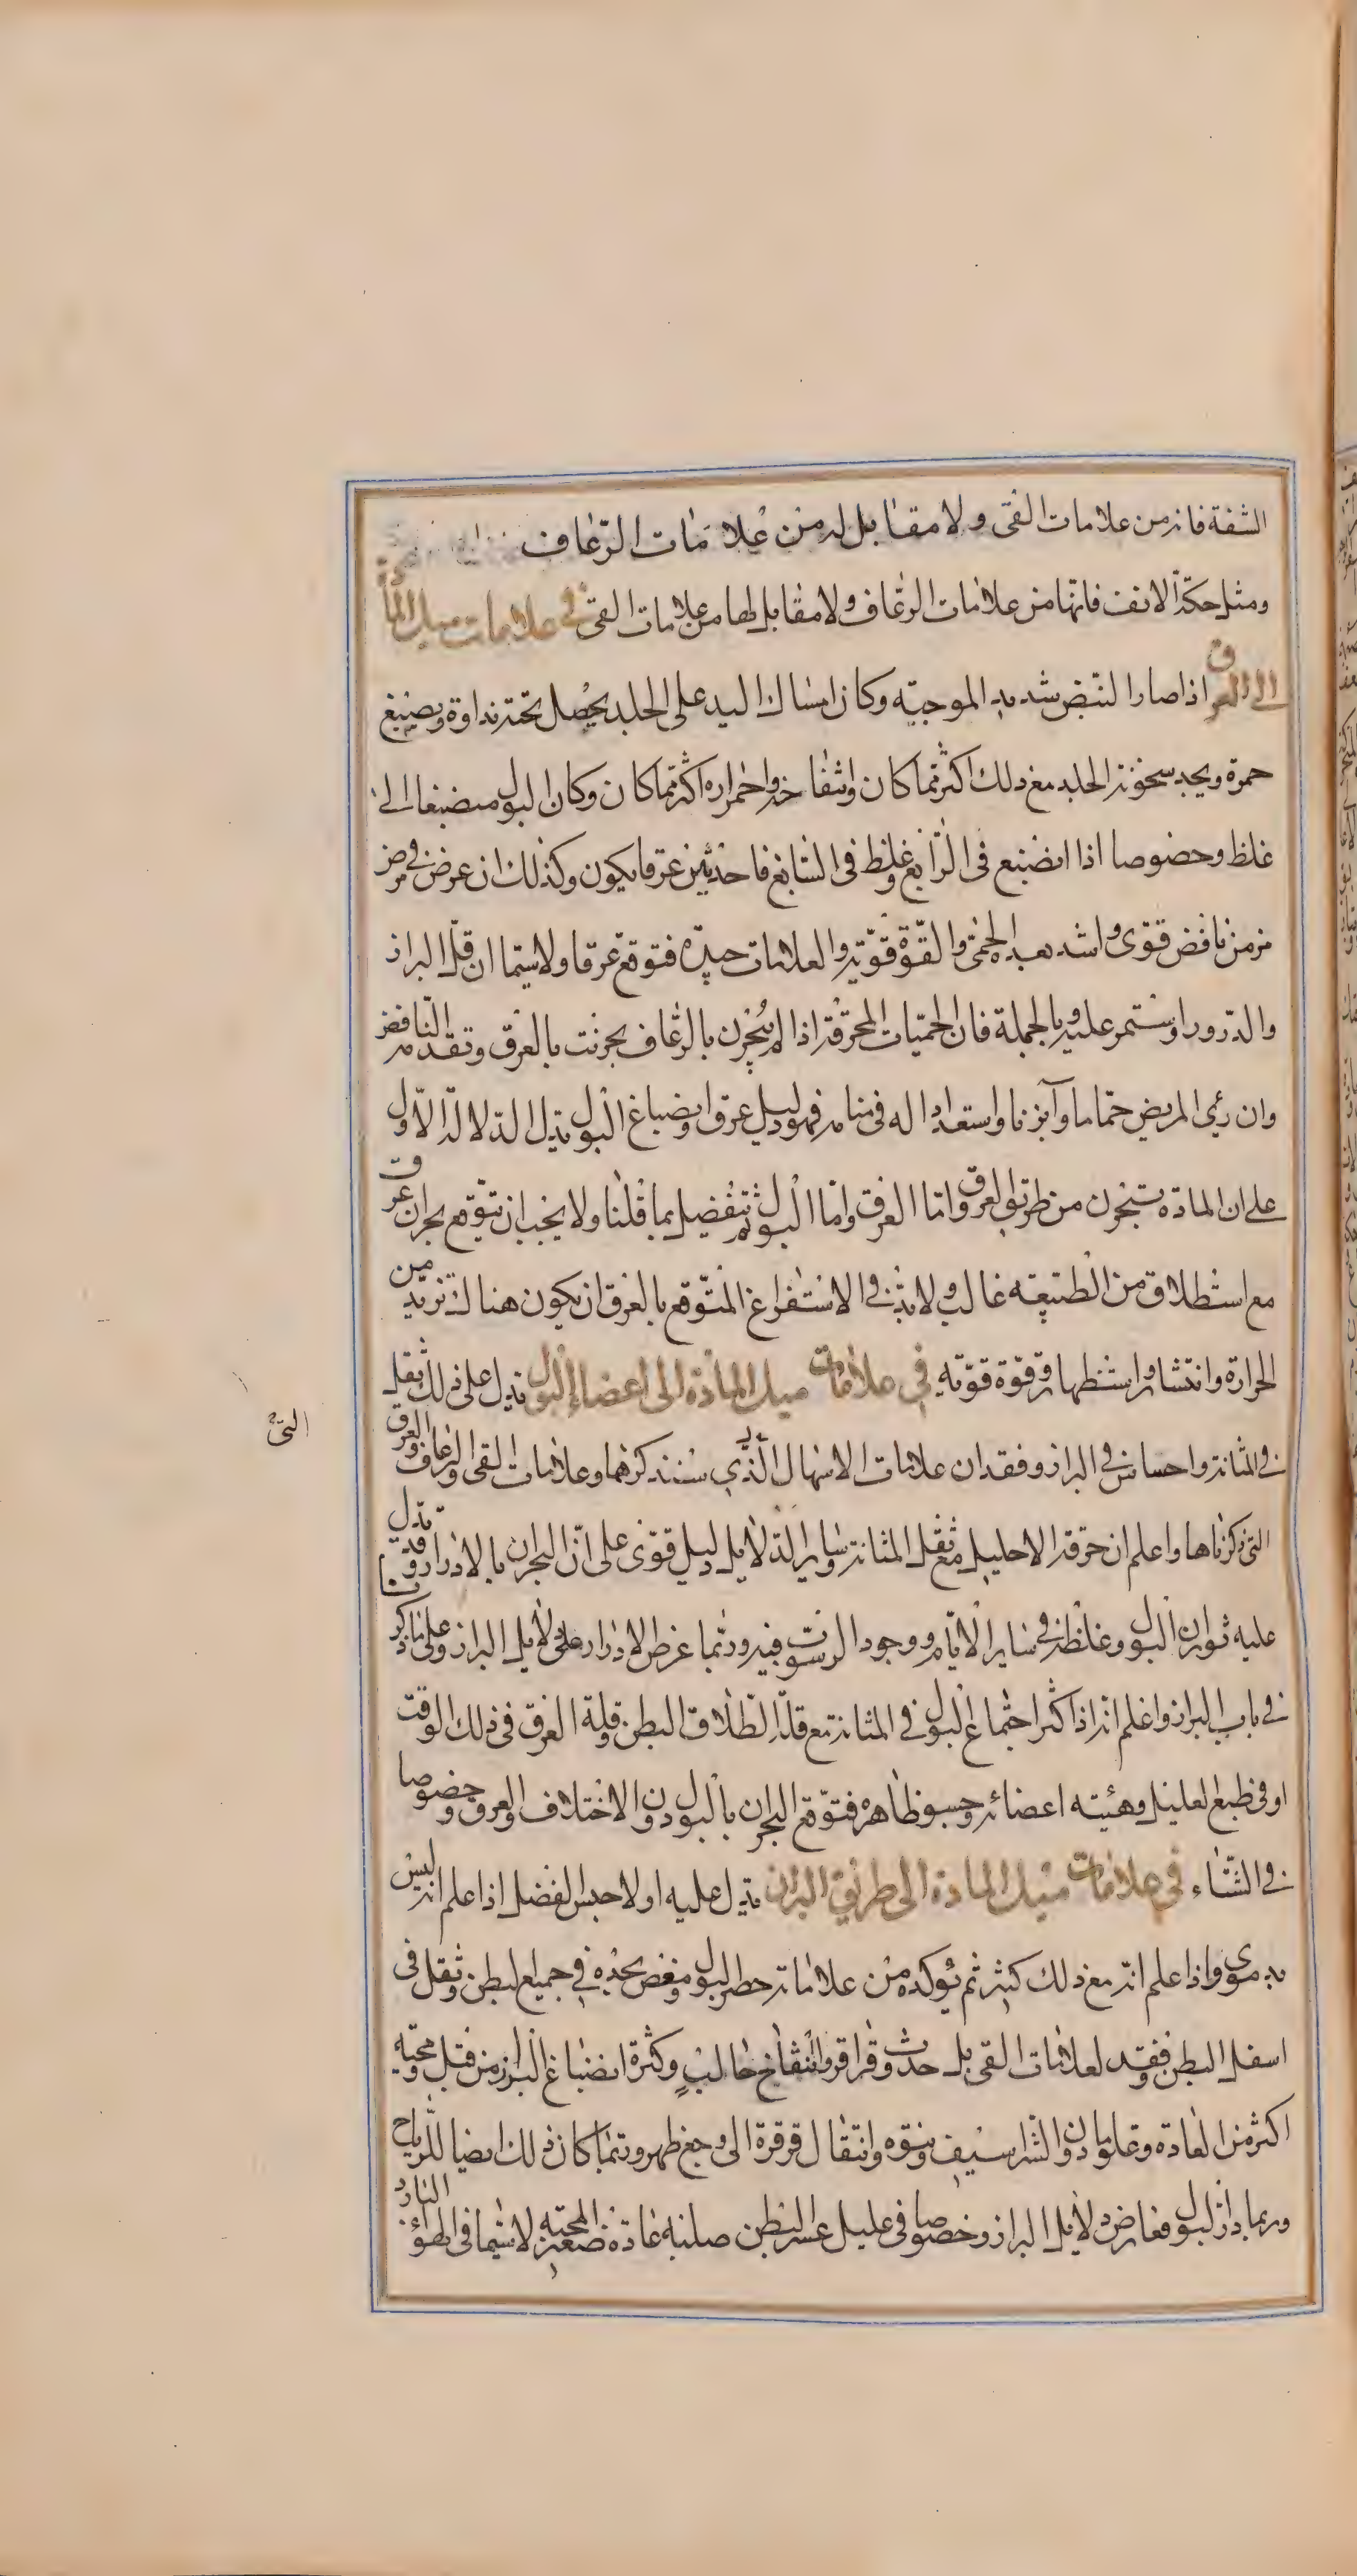 الشفة فانه من علامات القى ولا مقابل له من علامات الرعاف
ومثل حكة الانف فانها من علامات الرعاف ولا مقابل لها من علامات القى فى علامات ميل المادة
الى العرق اذا صار النبض شديد الموجيه وكان امساك اليد على الجلد يحصل تحته نداوة ويصيغ
حمرة ويجد سخونة الجلد مع ذلك اكثر مما كان وانتفاخه واحمراره اكثر مما كان وكان البول منصبغا الى
غلظ وخصوصا اذا انصبغ فى الرابع وغلظ فى السابع فاحدثين عرقا يكون وكذلك ان عرض فى مرض
مزمن نافض قوى واشد بعده الحمى والقوة قوية والعلامات جيدة فتوقع عرقا ولا سيما ان قل البراز
والدرور او ستمر عليه وبالجملة فان الحميات المحرقة اذا لم يبحرن بالرعاف بحرنت بالعرق وتقدمه النافض
وان رئى المريض حماما وآبزنا واستعدادا له فى منامه فهو دليل عرق وانصباغ البول يدل الدلالة الاول
على ان المادة يستبحرن من طريق العرق واما العرق واما البول ثم تفضيل بما قلنا ولا يجب ان تتوقع بحران عرق
مع استطلاق من الطبيعه غالب ولا بد فى الاستفراغ المتوقع بالعرق ان يكون هناك تزيد من
الحرارة وانتشار واستظهار وقوة قويه فى علامات ميل المادة الى اعضاء البول يدل على ذلك ثقل
فى المثانة واحساس فى البراز وفقدان علامات الاسهال الذى سنذكرها وعلامات القى والرعاف والعرق
التى
التى ذكرناها واعلم ان حرقة الاحليل مع ثقل المثانة وساير الدلايل دليل قوى على ان البحران بالادرار وقد يدل
عليه ثوران البول وغلظه فى ساير الايام ووجود الرسوب فيه وربما عرض الادرار على دلايل البراز وعلى ما ذكر
فى باب البراز واعلم انه اذا كثر اجتماع البول فى المثانة مع قلة الطلاق البطن وقلة العرق فى ذلك الوقت
او فى طبع العليل وهيئته اعضائه وجسو ظاهره فتوقع البحران بالبول دون الاختلاف والعرق وخصوصا
فى الشتاء فى علامات ميل المادة الى طريق البراز يدل عليه اولا حبس الفضل اذا علم انه ليس
بدموى واذا علم انه مع ذلك كثير ثم يؤكده من علاماته حصر البول ومغص يجده فى جميع البطن وثقل فى
اسفل البطن وفقد لعلامات القى بل حدث وقراقر وانتفاخ حالب وكثرة انصباغ البراز من قبل ومجيئه
اكثر من العادة وعلو ما دون الشراسيف ونتوه وانتقال قرقرة الى وجع ظهر وربما كان ذلك ايضا للرياح
وربما ادر البول فعارض دلايل البراز وخصوصا فى عليل عسر البطن صلبه عادة صغير المجسه لا سيما فى الهواء البارد